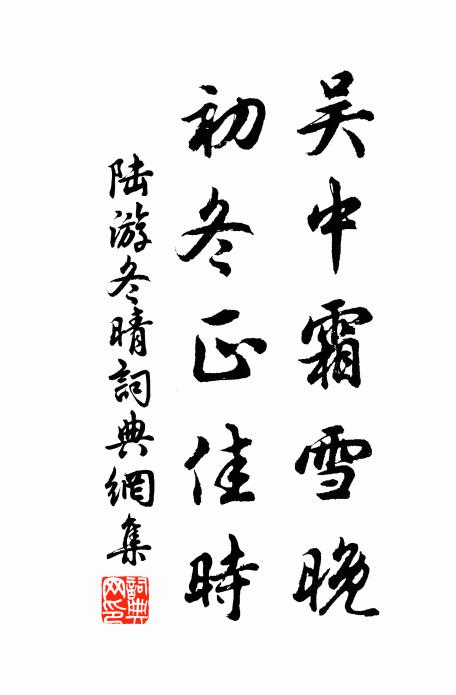 吴中霜雪晚
初冬正佳時
陆游冬晴詞典網集
詞典网印